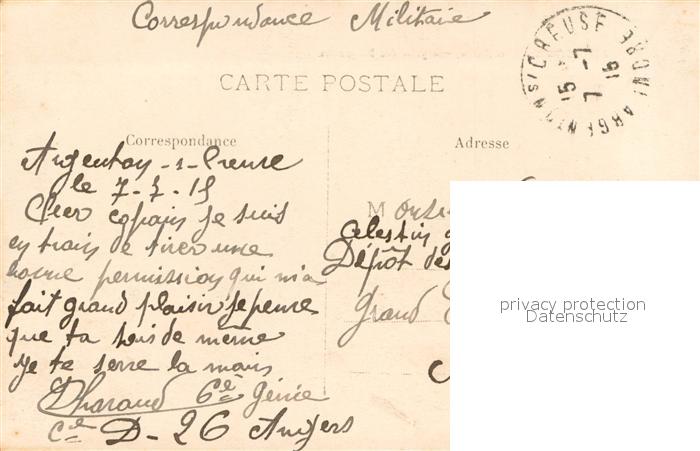 Correspondance Militaire
ARGENTON S/CREUSE INDRE
15 7 - 7 15
CARTE POSTALE
Correspondance
Adresse
Argenton-s-Creuse
le 7-7-15
Cher copain je suis
en train de tirer une
bonne permission qui m'a
fait grand plaisir je pense
que ta sois de même
je te serre la main
6e Génie
Cie D-26 Angers
M
Celestin
Dépôt des
Grand
privacy protection
Datenschutz